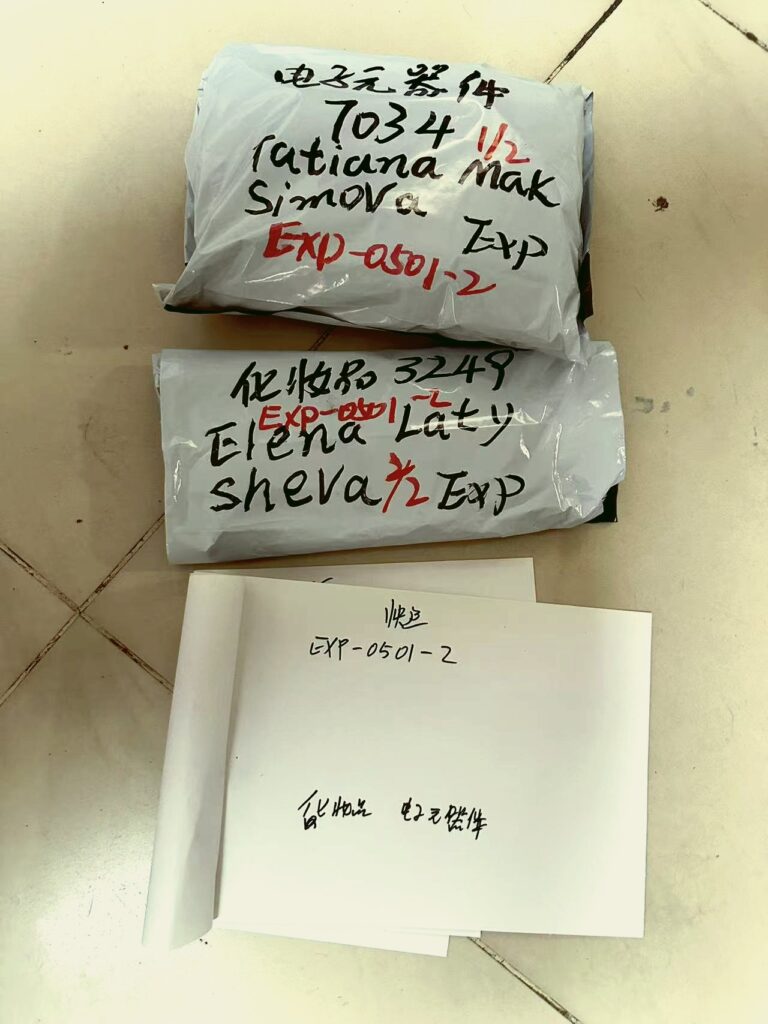 电子元器件
7034 1/2
Tatiana Mak
Simova Exp
EXP-0501-2
化妆品 3249
EXP-0501-2
Elena Laty
sheva 2/2 Exp
EXP-0501-2
化妆品 电子元器件